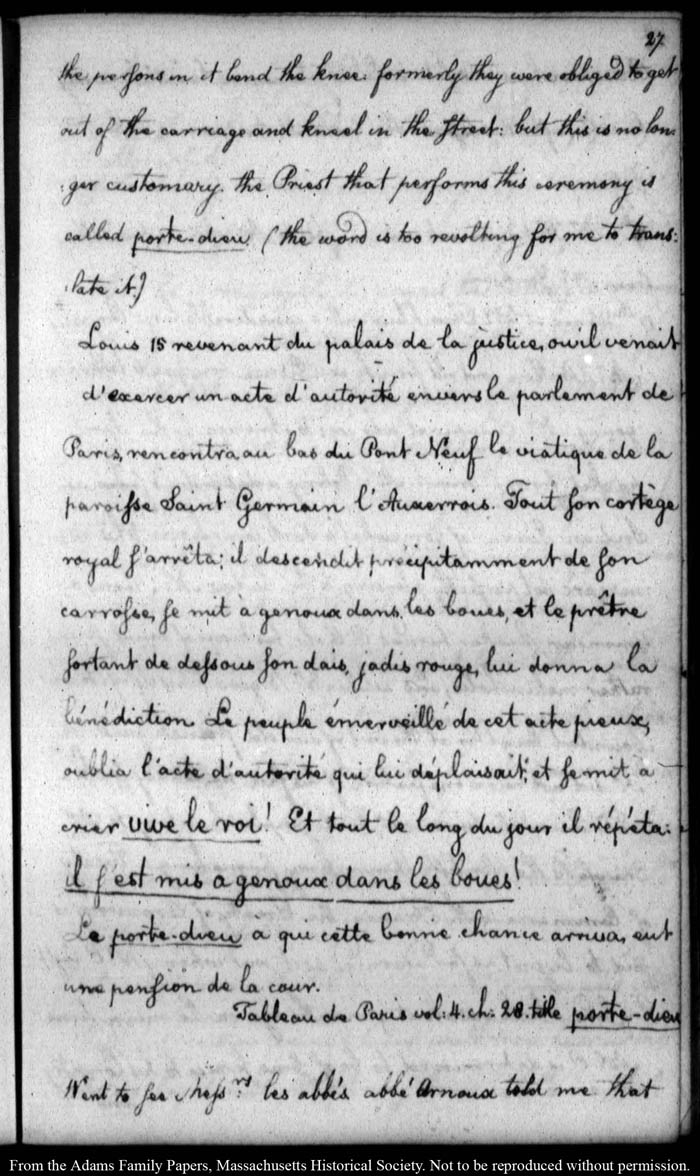 27
the persons in it bend the knee: formerly they were obliged to get
out of the carriage and kneel in the street: but this is no lon:
:ger customary. the Priest that performs this ceremony is
called porte-dieu (the word is too revolting for me to trans:
:late it.)
Louis 15 revenant du palais de la justice, ou il venait
d'exercer un acte d'autorité envers le parlement de
Paris, rencontra au bas du Pont Neuf le viatique de la
paroisse Saint Germain l'Auxerrois. Tout son cortège
royal s'arrêta; il descendit précipitamment de son
carrosse, se mit à genoux dans les boues, et le prêtre
sortant de dessous son dais, jadis rouge, lui donna la
bénédiction. Le peuple émerveillé de cet acte pieux,
oublia l'acte d'autorité qui lui déplaisait, et se mit a
crier vive le roi! Et tout le long du jour il répéta:
il s'est mis a genoux dans les boues!
Le porte-dieu a qui cette bonne chance arriva, eut
une pension de la cour.
Tableau de Paris vol: 4. ch: 28. title porte-dieu
Went to see Messrs. les abbés. abbé Arnoux told me that
From the Adams Family Papers, Massachusetts Historical Society. Not to be reproduced without permission.